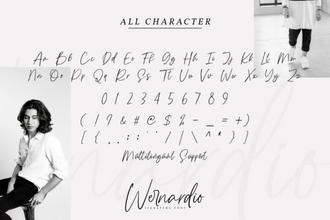 ALL CHARACTER
Aa Bb Cc Dd Ee Ff Gg Hh Ii Jj Kk Ll Mm
Nn Oo Pp Qq Rr Ss Tt Uu Vv Ww Xx Yy Zz
0 1 2 3 4 5 6 7 8 9
( ! ? & # @ $ % - _ = + )
[ { , . ; : ' " / | \ ^ * } ]
Multilingual Support
Wernardio
SIGNATURE FONT